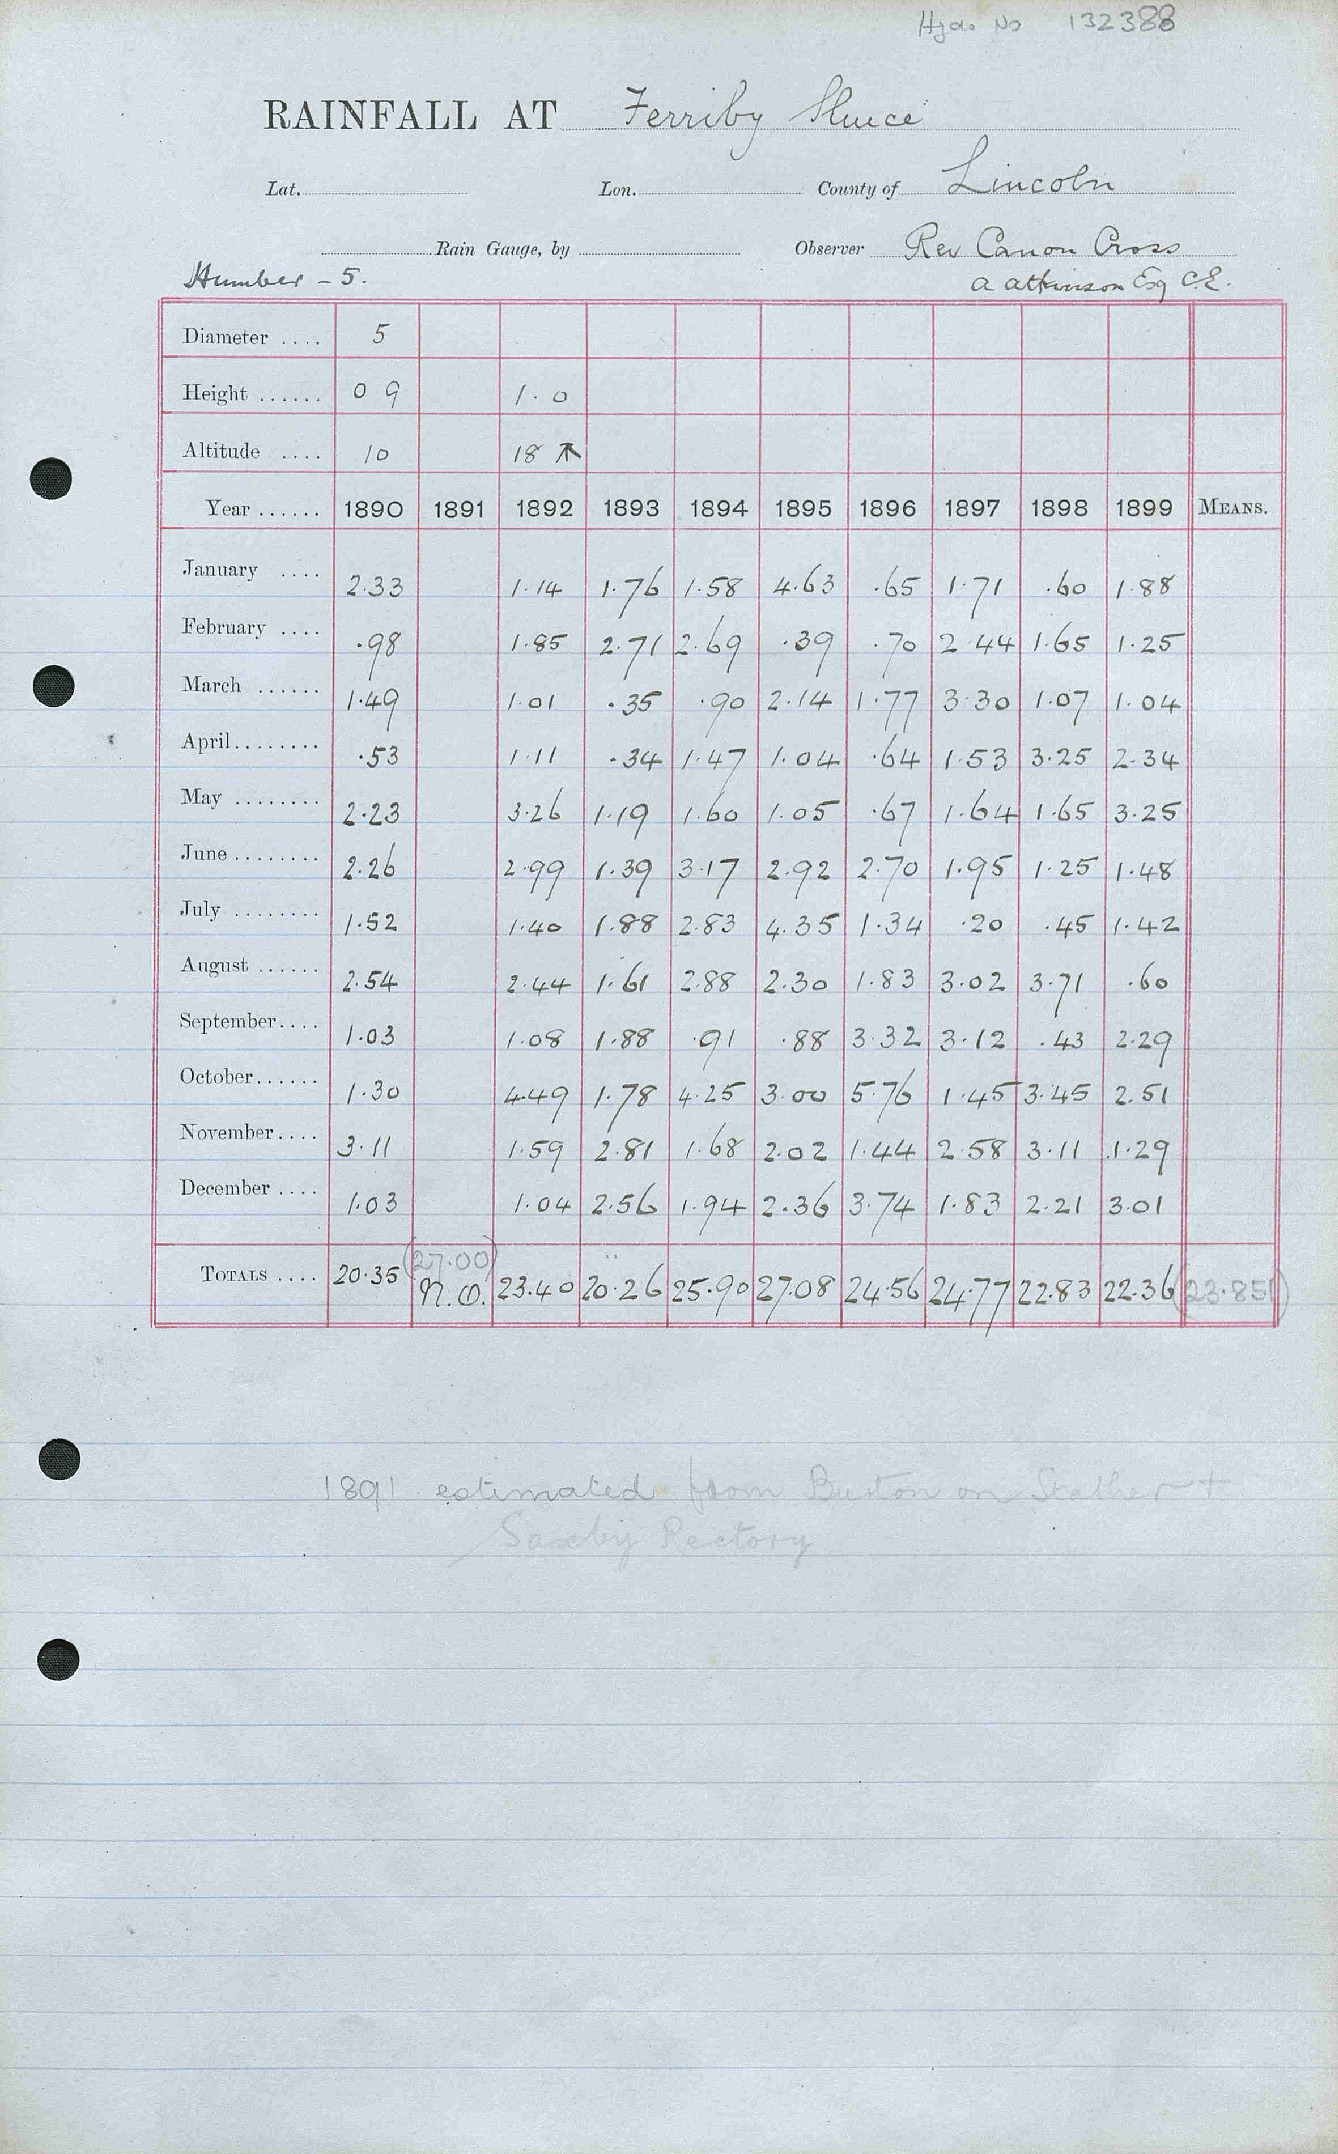 Hydro No 132388
RAINFALL AT Ferriby Sluice
Lat. Lon. County of Lincoln
Rain Gauge, by Observer Rev Canon Cross
Humber - 5. A Atkinson Esq C.E.
Diameter .... 5
Height ...... 0 9 1.0
Altitude .... 10 18
Year ...... 1890 1891 1892 1893 1894 1895 1896 1897 1898 1899 MEANS.
January .... 2.33 1.14 1.76 1.58 4.63 .65 1.71 .60 1.88
February .... .98 1.85 2.71 2.69 .39 .70 2.44 1.65 1.25
March ...... 1.49 1.01 .35 .90 2.14 1.77 3.30 1.07 1.04
April........ .53 1.11 .34 1.47 1.04 .64 1.53 3.25 2.34
May ........ 2.23 3.26 1.19 1.60 1.05 .67 1.64 1.65 3.25
June ........ 2.26 2.99 1.39 3.17 2.92 2.70 1.95 1.25 1.48
July ........ 1.52 1.40 1.88 2.83 4.35 1.34 .20 .45 1.42
August ...... 2.54 2.44 1.61 2.88 2.30 1.83 3.02 3.71 .60
September.... 1.03 1.08 1.88 .91 .88 3.32 3.12 .43 2.29
October...... 1.30 4.49 1.78 4.25 3.00 5.76 1.45 3.45 2.51
November.... 3.11 1.59 2.81 1.68 2.02 1.44 2.58 3.11 1.29
December .... 1.03 1.04 2.56 1.94 2.36 3.74 1.83 2.21 3.01
(27.00)
TOTALS .... 20.35 N.O. 23.40 20.26 25.90 27.08 24.56 24.77 22.83 22.36 (23.851)
1891 estimated from Burton on Stather +
Saxby Rectory